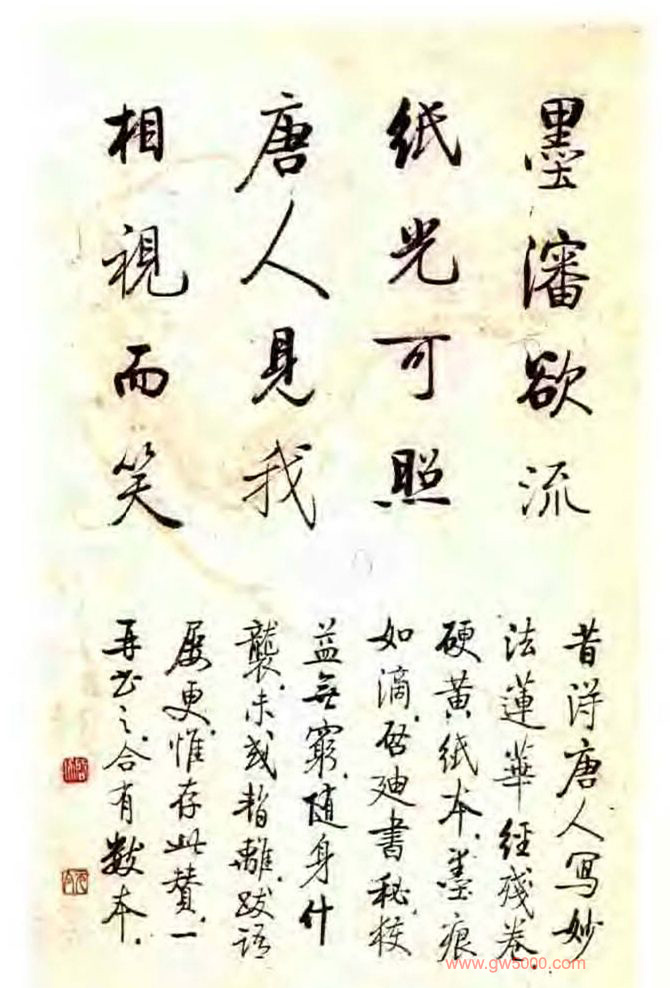 墨瀋欲流
紙光可照
唐人見我
相視而笑
昔得唐人寫妙
法蓮華經殘卷
硬黃紙本墨痕
如滴啟廸書秘獲
益無窮随身什
襲未或暫離跋語
屢更惟存此贊一
再书之合有數本
www.gw5000.com